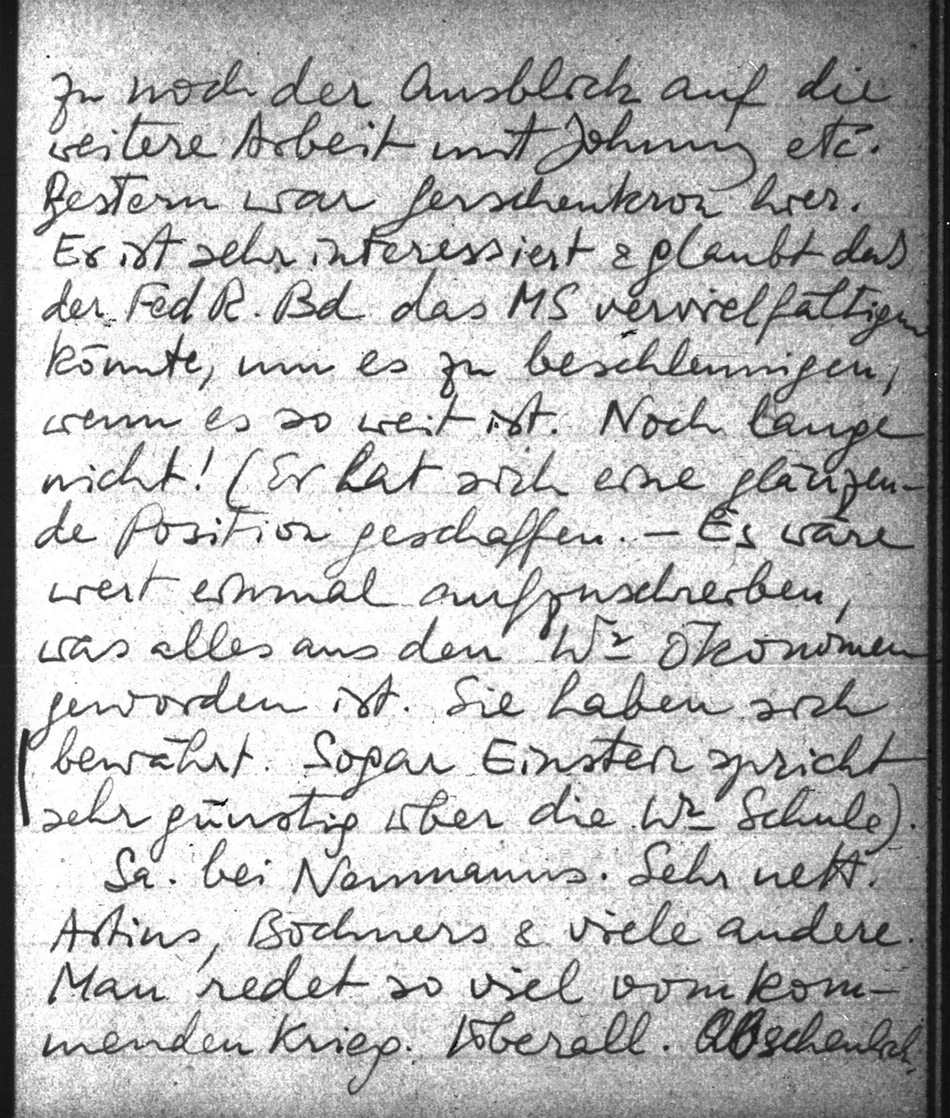 zu noch der Ausblick auf die
weitere Arbeit mit Johnny etc.
Gestern war Gerschenkron hier.
Er ist sehr interessiert & glaubt daß
der Fed R. Bd das MS vervielfältigen
könnte, um es zu beschleunigen,
wenn es so weit ist. Noch lange
nicht! (Er hat sich eine glänzen-
de Position geschaffen. — Es wäre
wert einmal aufzuschreiben,
was alles aus den Wr Ökonomen
geworden ist. Sie haben sich
bewährt. Sogar Einstein spricht
sehr günstig über die Wr Schule).
Sa. bei Neumanns. Sehr nett.
Artins, Bochners & viele andere.
Man redet so viel vom kom-
menden Krieg. Überall. Abscheulich.